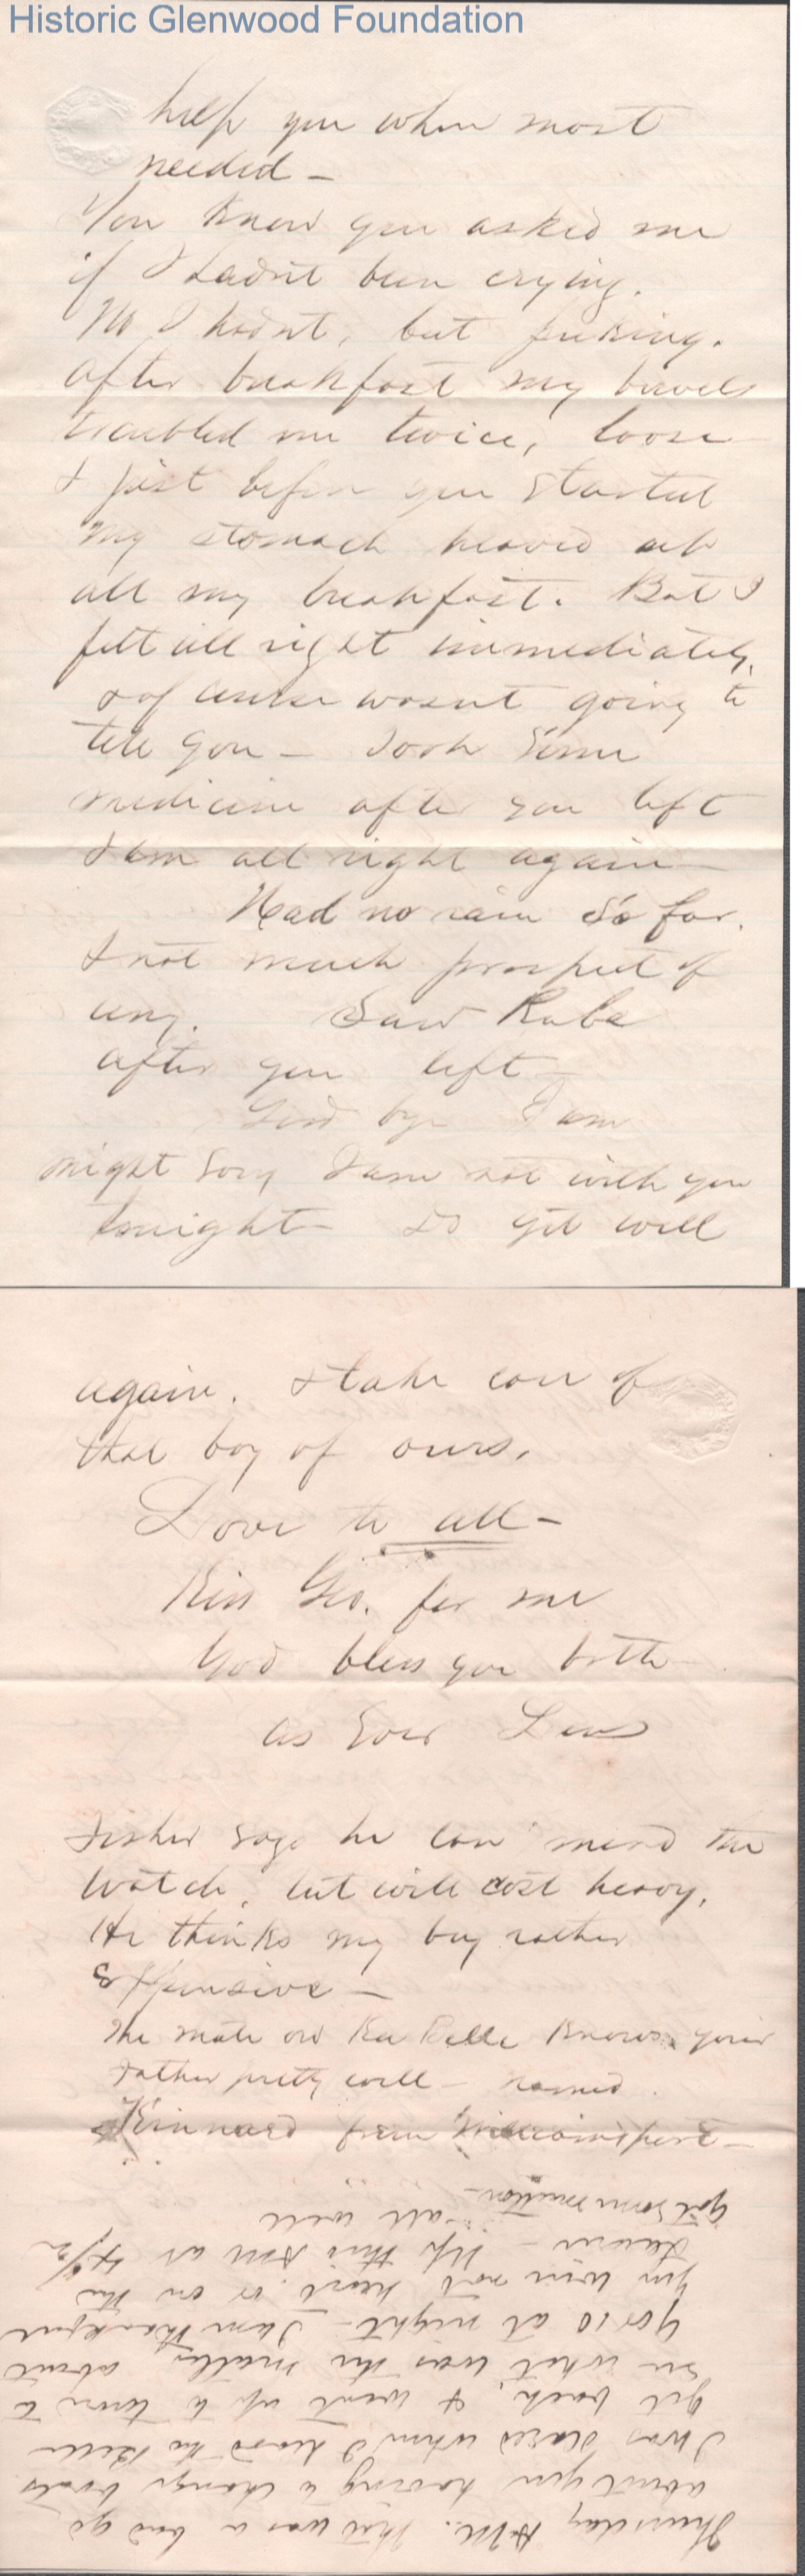 Historic Glenwood Foundation
help you when most
needed –
You know you asked me
if I hadnt been crying.
No I hadnt, but puking.
After breakfast my bowels
troubled me twice, loose
& just before you started
my stomach heaved up
all my breakfast. But I
felt all right immediately,
& of course wasnt going to
tell you – Took some
medicine after you left
& am all right again –
Had no rain so far.
& not much prospect of
any. Saw Rube
after you left –
Good bye I am
might sory I am not with you
tonight – Do get well
again. & take care of
that boy of ours.
Love to all –
Kiss Geo. for me
God bless you both –
as Ever Lew
Fisher says he can mend the
watch, but will cost heavy.
He thinks my bug rather
Expensive –
The mate on Belle knows your
Father pretty well – named
Kinnard from Williamsport –
Thursday AM. This was a bad go
about you having to change boats
I was scared when I heard the Belle
get back, & went up to town to
see what was the matter, about
9 or 10 at night – I am thankful
you were not hurt or on the
– Up this AM at 4 1/2
all well
Got some mutton –